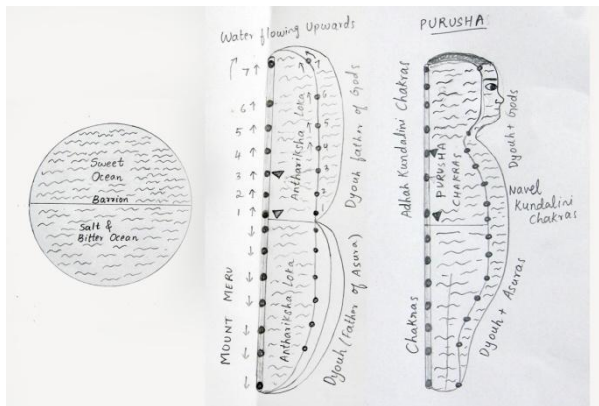 Sweet
Ocean
Barrion
Salt &
Bitter Ocean
Water flowing Upwards
7
6
5
4
3
2
1
Anthariksha Loka
Anthariksha Loka
6
5
4
3
2
1
MOUNT MERU
Dyouh father of Gods
Dyouh (Father of Asura)
PURUSHA
Adhah Kundalini Chakras
PURUSHA
CHAKRAS
Dyouh + Gods
Navel
Kundalini
Chakras
Chakras
Dyouh + Asuras